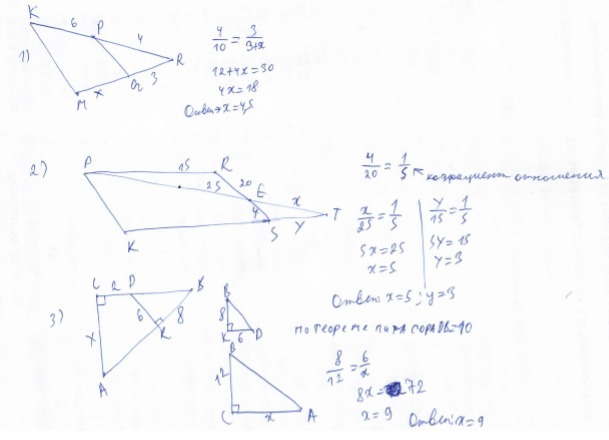 1)
K 6 P 4 R
M x Q 3
4/10 = 3/3+x
12+4x=30
4x=18
Ответ x=4,5
2)
P 15 R
25 20 E x T
K 4 S y
4/20 = 1/5 ← коэрациент отношения
x/25 = 1/5
5x=25
x=5
y/15 = 1/5
5y=15
y=3
Ответ: x=5; y=3
3)
C 2 D B
x 6 8
K
A
B
8
K 6 D
B
12
C x A
по теореме пифагора DB=10
8/12 = 6/x
8x=72
x=9
Ответ: x=9